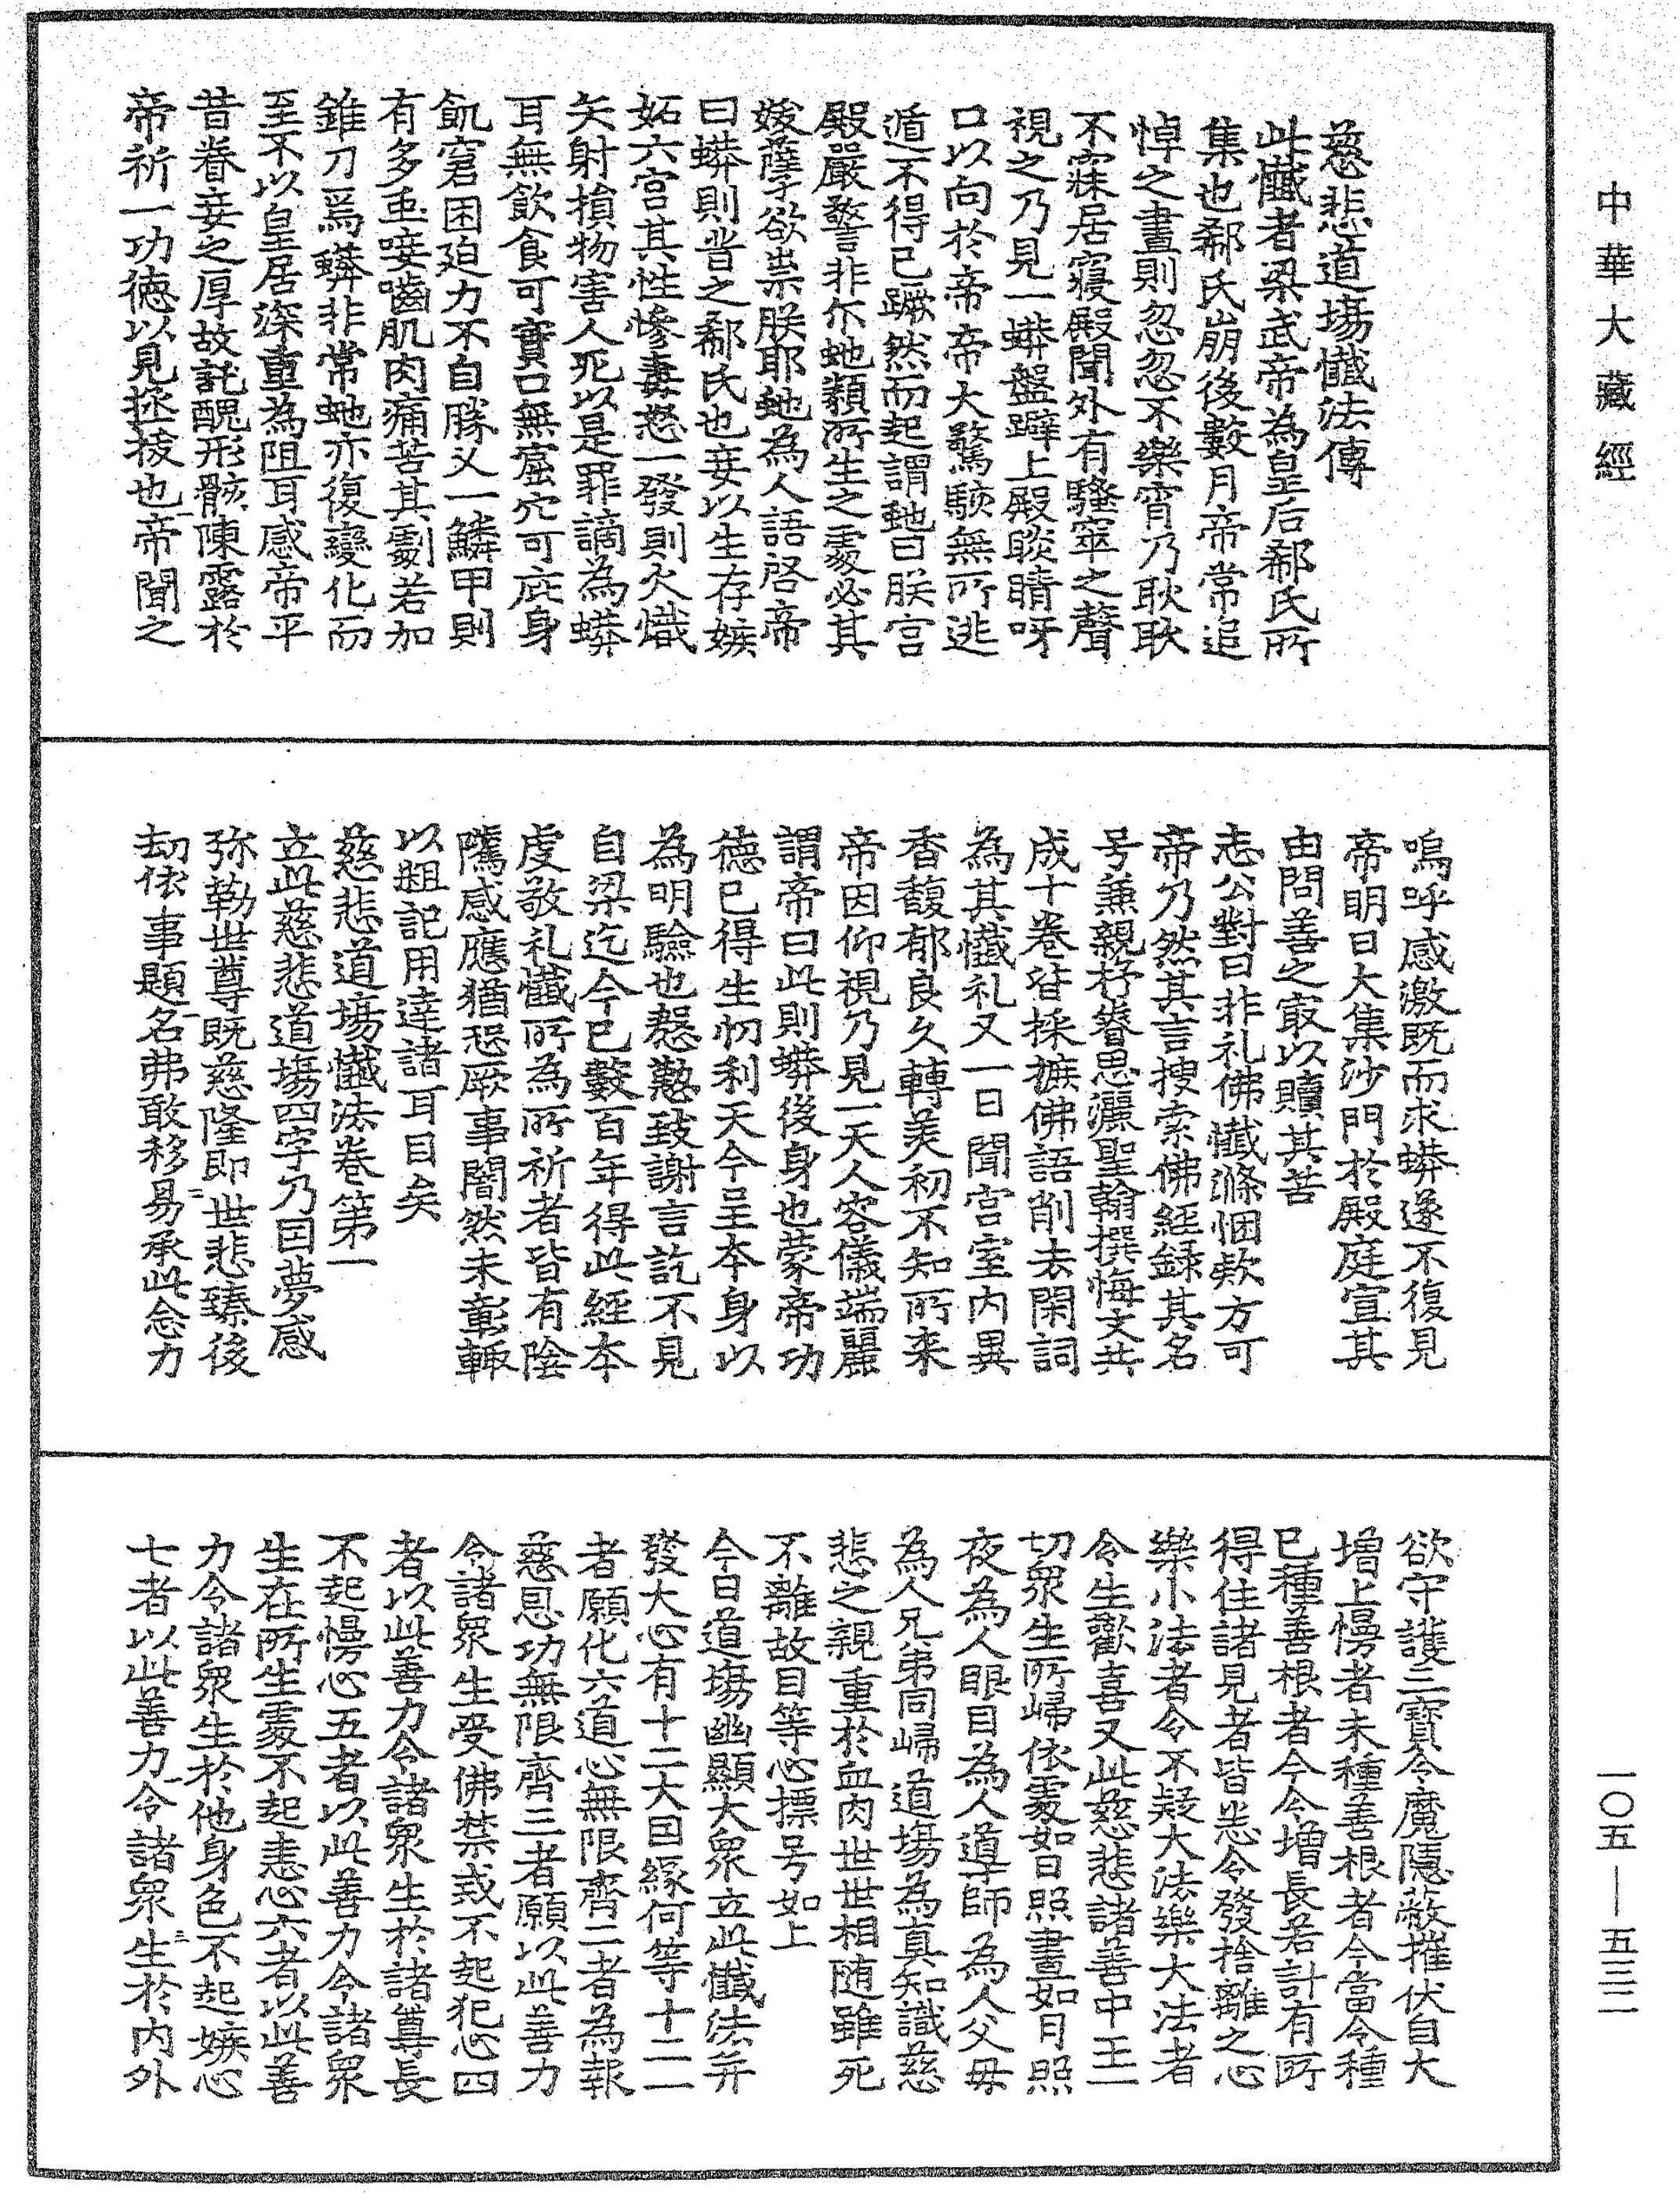 中華大藏經
慈悲道場懺法傳
此懺者梁武帝為皇后郗氏所
集也郗氏崩後數月帝常追
悼之晝則忽忽不樂宵乃耿耿
不寐居寢殿聞外有騷窣之聲
視之乃見一蟒盤躃上殿睒睛呀
口以向於帝帝大驚駭無所逃
遁不得已蹶然而起謂虵曰朕宮
殿嚴警非尒虵類所生之處必其
妖孽欲祟朕耶虵為人語啓帝
曰蟒則昔之郗氏也妾以生存嫉
妬六宮其性慘毒怒一發則火熾
矢射損物害人死以是罪謫為蟒
耳無飲食可實口無窟穴可庇身
飢窘困迫力不自勝又一鱗甲則
有多䖝唼嚙肌肉痛苦其劇若加
錐刀焉蟒非常虵亦復變化而
至不以皇居深重為阻耳感帝平
昔眷妾之厚故託醜形骸陳露於
帝祈一功德以見拯拔也帝聞之
嗚呼感激既而求蟒遂不復見
帝明日大集沙門於殿庭宣其
由問善之最以贖其苦
志公對曰非礼佛懺滌悃欵方可
帝乃然其言搜索佛經錄其名
号兼親抒睿思灑聖翰撰悔文共
成十卷皆採摭佛語削去閑詞
為其懺礼又一日聞宮室內異
香馥郁良久轉美初不知所来
帝因仰視乃見一天人容儀端麗
謂帝曰此則蟒後身也蒙帝功
德已得生忉利天今呈本身以
為明驗也慇懃致謝言訖不見
自梁迄今已數百年得此經本
虔敬礼懺所為所祈者皆有陰
隲感應猶恐厥事闇然未彰輙
以粗記用達諸耳目矣
慈悲道場懺法卷第一
立此慈悲道場四字乃因夢感
弥勒世尊既慈隆即世悲臻後
劫依事題名弗敢移易承此念力
欲守護三寶令魔隱蔽摧伏自大
增上慢者未種善根者今當令種
已種善根者今令增長若計有所
得住諸見者皆悉令發捨離之心
樂小法者令不疑大法樂大法者
令生歡喜又此慈悲諸善中王一
切眾生所歸依處如日照晝如月照
夜為人眼目為人導師為人父母
為人兄弟同歸道場為真知識慈
悲之親重於血肉世世相随雖死
不離故目等心摽号如上
今日道場幽顯大眾立此懺法并
發大心有十二大因緣何等十二一
者願化六道心無限齊二者為報
慈恩功無限齊三者願以此善力
令諸眾生受佛禁戒不起犯心四
者以此善力令諸眾生於諸尊長
不起慢心五者以此善力令諸眾
生在所生處不起恚心六者以此善
力令諸眾生於他身色不起嫉心
七者以此善力令諸眾生於內外
一〇五—五三二